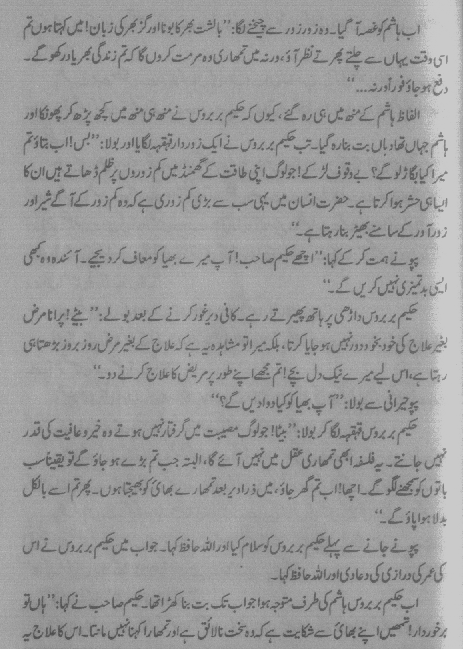 اب ہاشم کو غصہ آ گیا۔ وہ زور زور سے چیخنے لگا: ”بالشت بھر کا بونا اور گز بھر کی زبان! میں کہتا ہوں تم
اسی وقت یہاں سے چلتے پھرتے نظر آؤ، ورنہ میں تمھاری وہ مرمت کروں گا کہ تم زندگی بھر یاد رکھو گے۔
دفع ہو جاؤ فوراً ورنہ...“
الفاظ ہاشم کے منھ میں ہی رہ گئے، کیوں کہ حکیم بربروس نے منھ ہی منھ میں کچھ پڑھ کر پھونکا اور
ہاشم جہاں تھا وہاں بت بنا رہ گیا۔ تب حکیم بربروس نے ایک زور دار قہقہہ لگایا اور بولا: ”بس! اب بتاؤ تم
میرا کیا بگاڑ لو گے؟ بے وقوف لڑکے! جو لوگ اپنی طاقت کے گھمنڈ میں کم زوروں پر ظلم ڈھاتے ہیں ان کا
ایسا ہی حشر ہوا کرتا ہے۔ حضرت انسان میں یہی سب سے بڑی کم زوری ہے کہ وہ کم زور کے آگے شیر اور
زور آور کے سامنے بھیڑ بنا رہتا ہے۔“
پپو نے ہمت کر کے کہا: ”اچھے حکیم صاحب! آپ میرے بھیا کو معاف کر دیجیے۔ آئندہ وہ کبھی
ایسی بدتمیزی نہیں کریں گے۔“
حکیم بربروس داڑھی پر ہاتھ پھیرتے رہے۔ کافی دیر غور کرنے کے بعد بولے: ”بیٹے! پرانا مرض
بغیر علاج کی خود بخود دور نہیں ہو جایا کرتا، بلکہ میرا تو مشاہدہ یہ ہے کہ علاج کے بغیر مرض روز بروز بڑھتا ہی
رہتا ہے، اس لیے میرے نیک دل بچے! تم مجھے اپنے طور پر مریض کا علاج کرنے دو۔“
پپو حیرانی سے بولا: ”آپ بھیا کو کیا دوا دیں گے؟“
حکیم بربروس قہقہہ لگا کر بولا: ”بیٹا! جو لوگ مصیبت میں گرفتار نہیں ہوتے وہ خیر و عافیت کی قدر
نہیں جانتے۔ یہ فلسفہ ابھی تمھاری عقل میں نہیں آئے گا، البتہ جب تم بڑے ہو جاؤ گے تو یقیناً سب
باتوں کو سمجھنے لگو گے۔ اچھا! اب تم گھر جاؤ، میں ذرا دیر بعد تمھارے بھائی کو بھیجتا ہوں۔ پھر تم اسے بالکل
بدلا ہوا پاؤ گے۔“
پپو نے جانے سے پہلے حکیم بربروس کو سلام کیا اور اللہ حافظ کہا۔ جواب میں حکیم بربروس نے اس
کی عمر کی درازی کی دعا دی اور اللہ حافظ کہا۔
اب حکیم بربروس ہاشم کی طرف متوجہ ہوا جو اب تک بت بنا کھڑا تھا۔ حکیم صاحب نے کہا: ”ہاں تو
برخوردار! تمھیں اپنے بھائی سے شکایت ہے کہ وہ سخت نالائق ہے اور تمھارا کہنا نہیں مانتا۔ اس کا علاج یہ